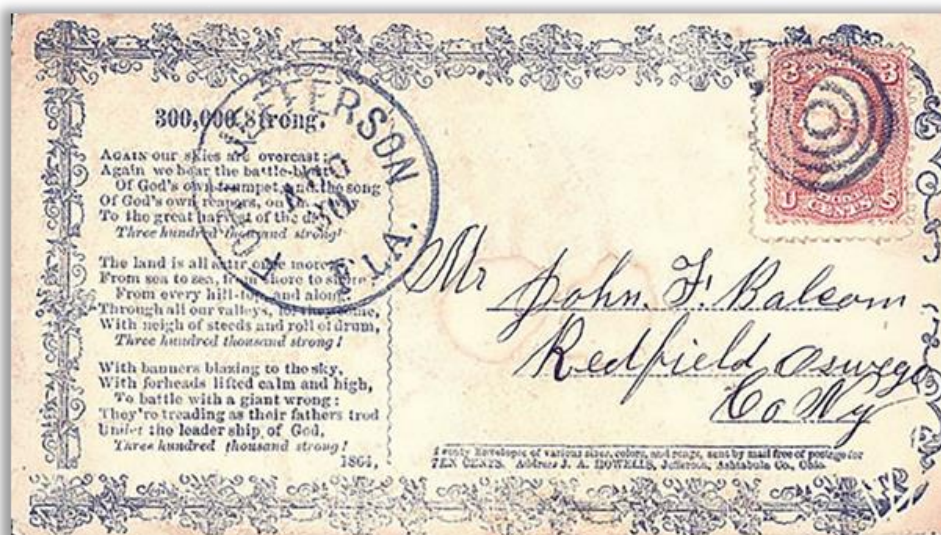 300,000 Strong.
AGAIN our skies are overcast;
Again we hear the battle-blast
Of God's own trumpet, and the song
Of God's own reapers, on
To the great harvest of the
Three hundred thousand strong!
The land is all astir once more
From sea to sea, from shore to shore;
From every hill-top and along
Through all our valleys, for
With neigh of steeds and roll of drum,
Three hundred thousand strong!
With banners blazing to the sky,
With forheads lifted calm and high,
To battle with a giant wrong:
They're treading as their fathers trod
Under the leader ship of God,
Three hundred thousand strong!
1864,
FORT JEFFERSON
FLA.
3 3
U S
CENTS
Mr John. F. Balsom
Redfield Oswego
Co Ny
Envelopes of various sizes, colors, and songs, sent by mail free of postage for
TEN CENTS. Address J. A. HOWELLS, Jefferson, Ashtabula Co., Ohio.